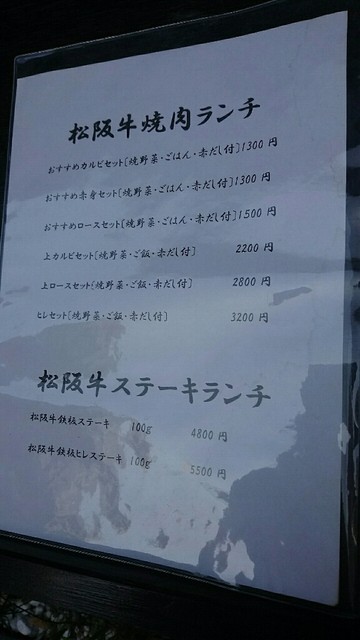 松阪牛焼肉ランチ
おすすめカルビセット[焼野菜・ごはん・赤だし付]1300 円
おすすめ赤身セット[焼野菜・ごはん・赤だし付]1300 円
おすすめロースセット[焼野菜・ごはん・赤だし付]1500 円
上カルビセット[焼野菜・ご飯・赤だし付] 2200 円
上ロースセット[焼野菜・ご飯・赤だし付] 2800 円
ヒレセット[焼野菜・ご飯・赤だし付] 3200 円
松阪牛ステーキランチ
松阪牛鉄板ステーキ 100g 4800 円
松阪牛鉄板ヒレステーキ 100g 5500 円